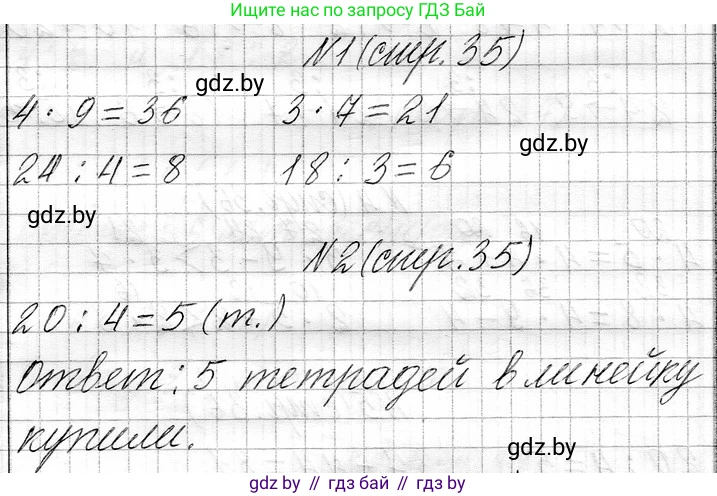 Ищите нас по запросу ГДЗ Бай
N1 (стр. 35)
gdz.by
4 · 9 = 36 3 · 7 = 21
gdz.by
24 : 4 = 8 18 : 3 = 6
gdz.by
N2 (стр. 35)
20 : 4 = 5 (т.)
Ответ: 5 тетрадей в линейку
купили.
gdz.by
gdz.by // гдз бай // gdz.by